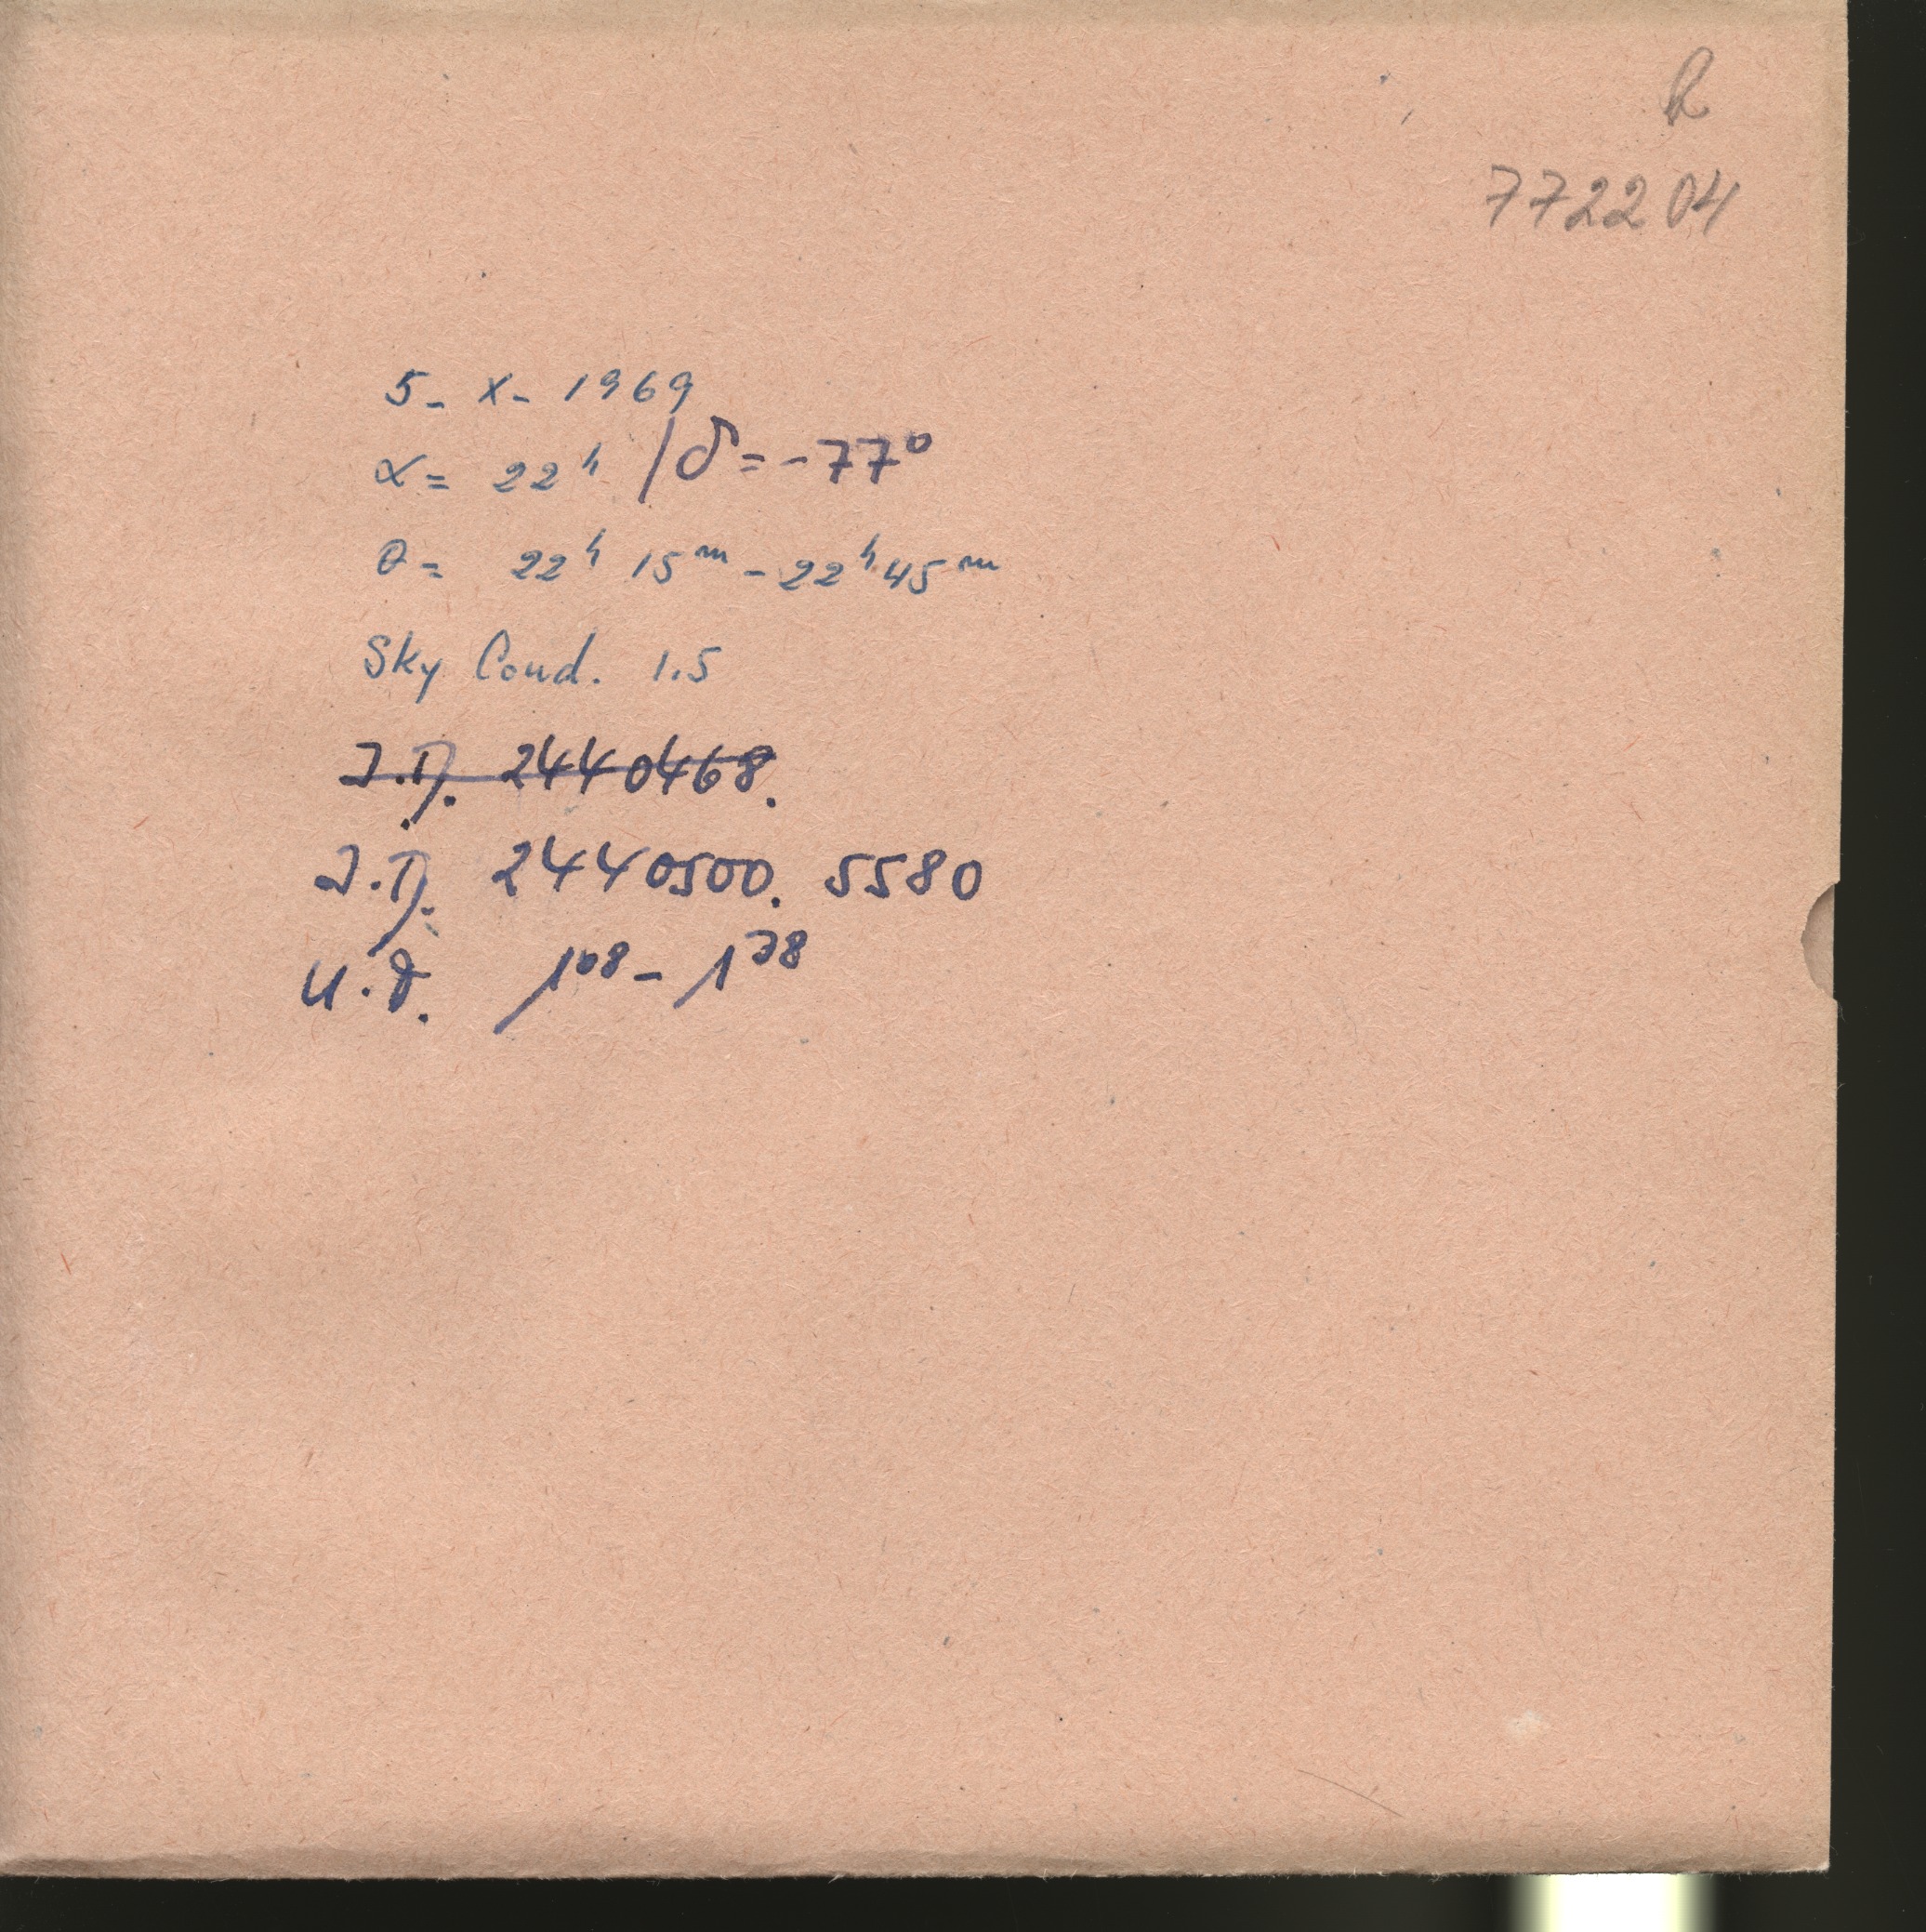 R
772204
5- X- 1969
α= 22ʰ / δ= -77°
θ= 22ʰ 15ᵐ - 22ʰ 45ᵐ
Sky Cond. 1.5
J.D. 2440468.
J.D. 2440500. 5580
U.T. 1⁰⁸ - 1³⁸